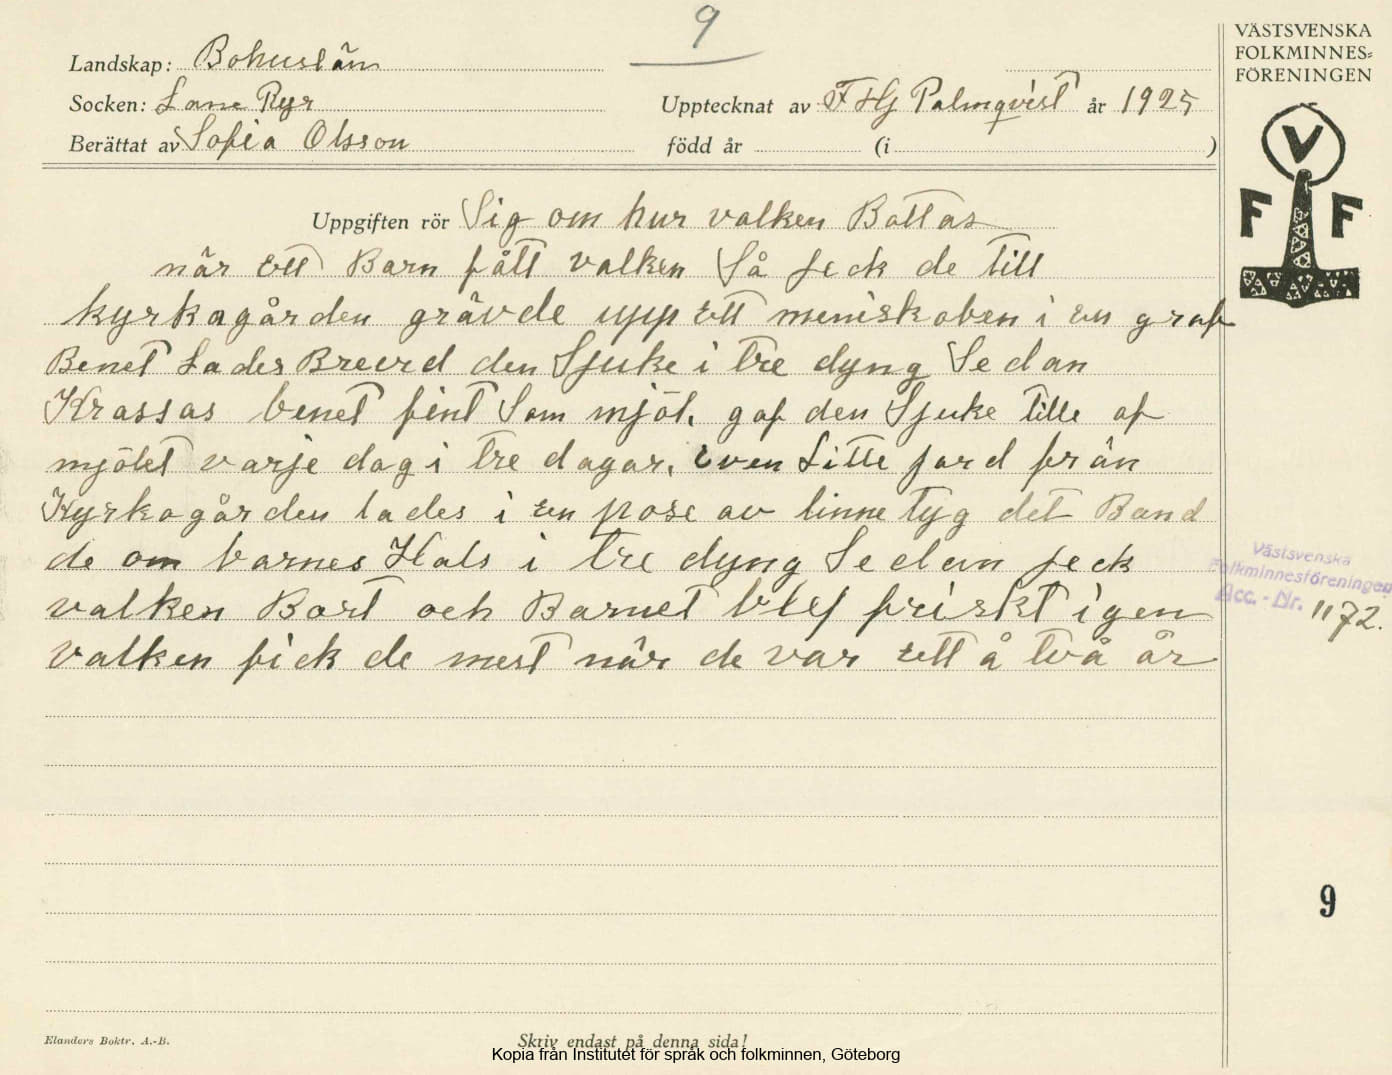 9
VÄSTSVENSKA
FOLKMINNES=
FÖRENINGEN
Landskap: Bohuslän
Socken: Lane Ryr
Upptecknat av F Hj Palmqvist år 1925
Berättat av Sofia Olsson
född år (i )
V
F F
Uppgiften rör Sig om hur valken Bottas
när ett Barn fått valken Så feck de till
kyrkagården grävde upp ett meniskoben i en graf
Benet Lades Brevd den Sjuke i tre dyng Sedan
Krassas benet fint Som mjöl. gaf den Sjuke tille af
mjölet varje dag i tre dagar. även Litte jord från
Kyrkogården lades i en pose av linne tyg det Band
de om barnes Hals i tre dyng Sedan feck
valken Bort och Barnet blef friskt igen
valken fick de mest när de var ett å två år
Västsvenska
Folkminnesföreningen
Acc.-Nr. 1172.
9
Elanders Boktr. A.-B.
Skriv endast på denna sida!
Kopia från Institutet för språk och folkminnen, Göteborg